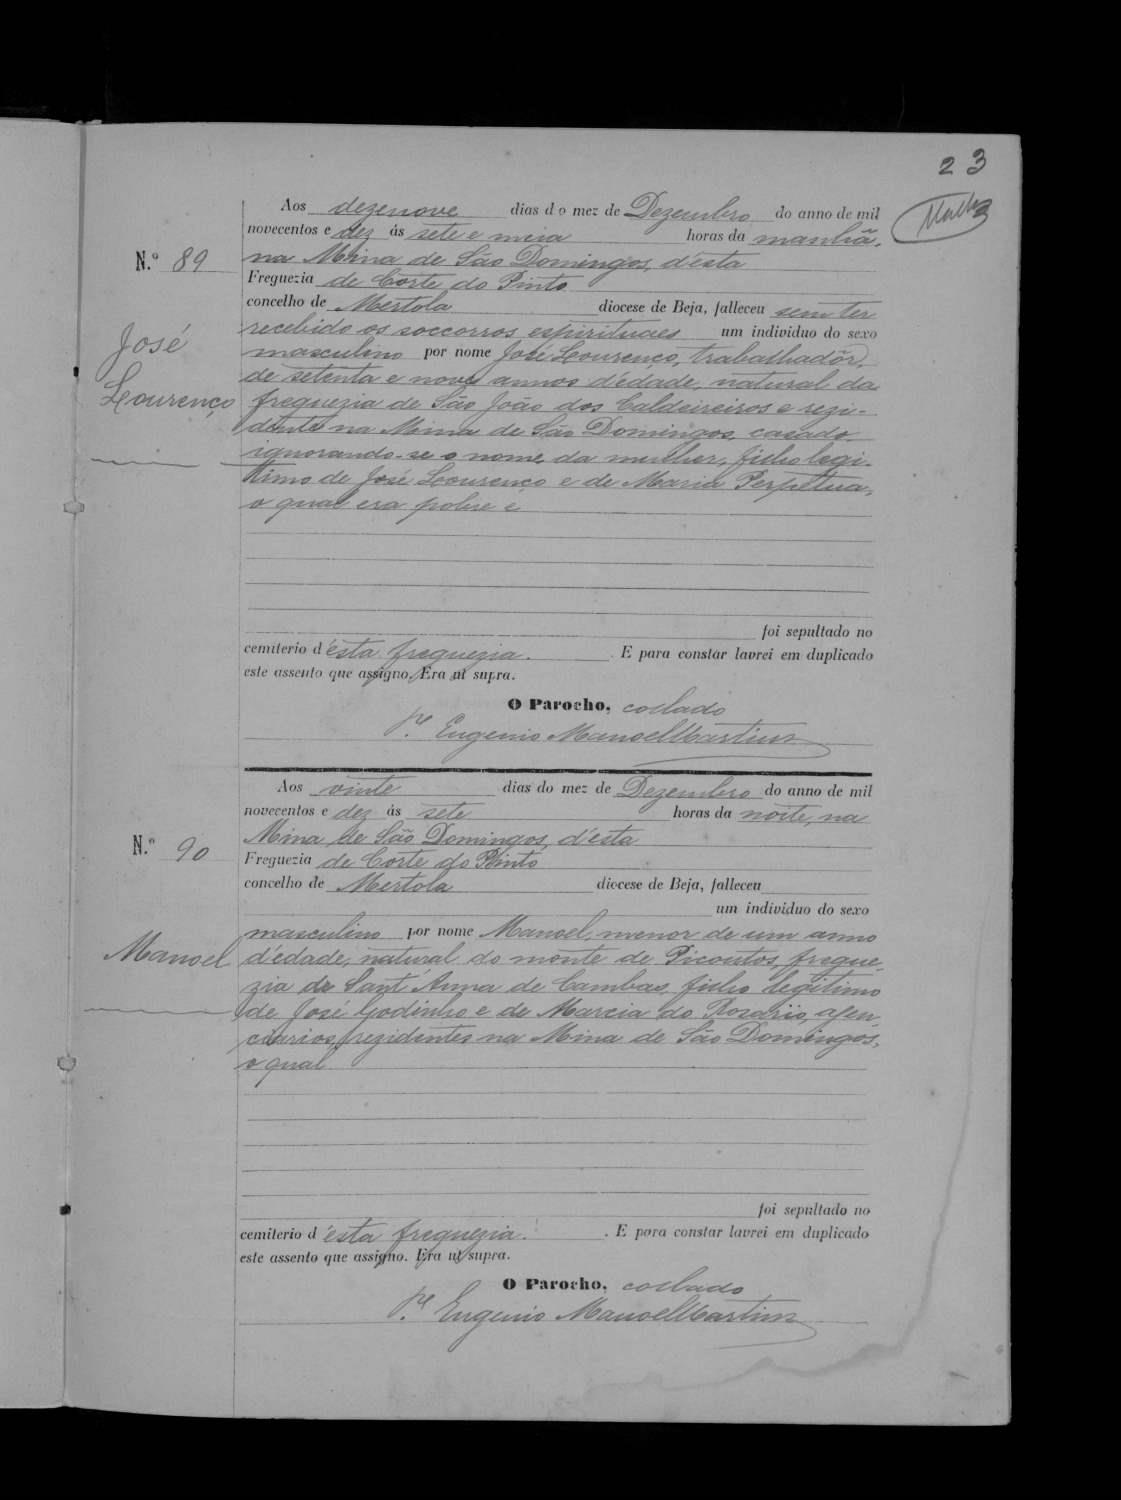 23
Aos dezenove dias do mez de Dezembro do anno de mil
novecentos e dez ás sete e meia horas da manhã,
N.º 89
na Mina de São Domingos, d'esta
Freguezia de Corte do Pinto
concelho de Mertola diocese de Beja, falleceu sem ter
recebido os soccorros espirituaes um individuo do sexo
José
Lourenço
masculino por nome José Lourenço, trabalhadôr,
de setenta e nove annos d'édade, natural da
freguezia de São João dos Caldeireiros e rezi-
dente na Mina de São Domingos, casado
ignorando-se o nome da mulher, filho legi-
timo de José Lourenço e de Maria Perpetua,
o qual era pobre e
foi sepultado no
cemiterio d'ésta freguezia. E para constar lavrei em duplicado
este assento que assigno. Era ut supra.
O Parocho, collado
P.e Eugenio Manoel Martins
Aos vinte dias do mez de Dezembro do anno de mil
novecentos e dez ás sete horas da noite, na
N.º 90
Mina de São Domingos, d'esta
Freguezia de Corte do Pinto
concelho de Mertola diocese de Beja, falleceu
um individuo do sexo
Manoel
masculino por nome Manoel, menor de um anno
d'édade, natural do monte de Picoutos, fregue-
zia de Sant'Anna de Cambas, filho legitimo
de José Godinho e de Marcia do Rozario, asen-
ciarios, rezidentes na Mina de São Domingos,
o qual
foi sepultado no
cemiterio d'ésta freguezia. E para constar lavrei em duplicado
este assento que assigno. Era ut supra.
O Parocho, collado
P.e Eugenio Manoel Martins